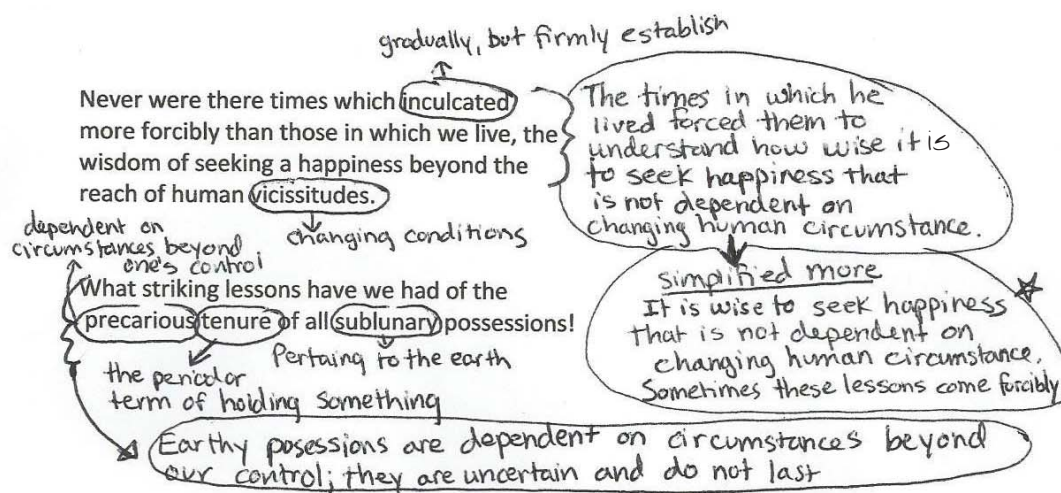 gradually, but firmly establish
Never were there times which inculcated
more forcibly than those in which we live, the
wisdom of seeking a happiness beyond the
reach of human vicissitudes.
changing conditions
The times in which he
lived forced them to
understand how wise it is
to seek happiness that
is not dependent on
changing human circumstance.
simplified more
It is wise to seek happiness
that is not dependent on
changing human circumstance.
Sometimes these lessons come forcibly
dependent on
circumstances beyond
one's control
What striking lessons have we had of the
precarious tenure of all sublunary possessions!
Pertaing to the earth
the period or
term of holding something
Earthy posessions are dependent on circumstances beyond
our control; they are uncertain and do not last